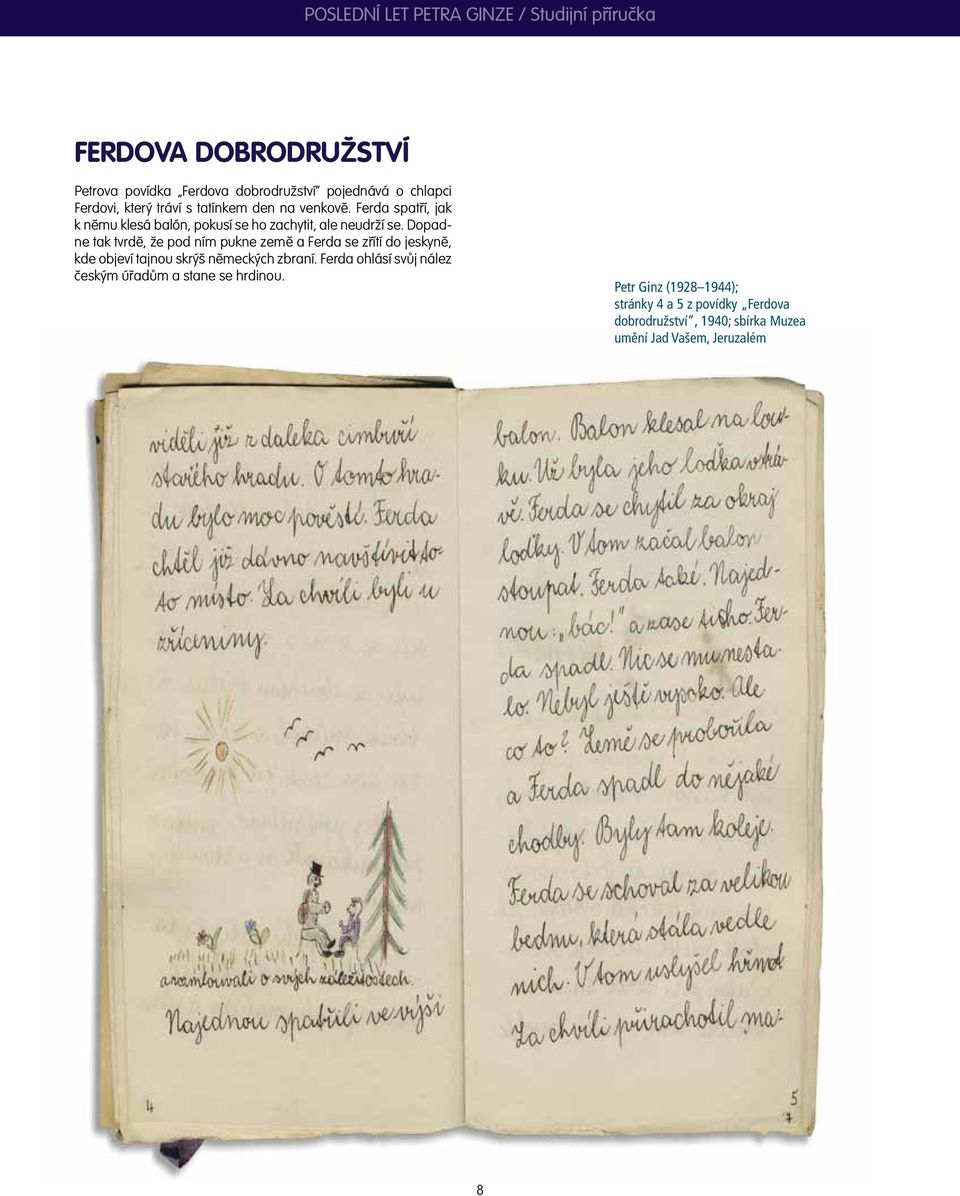 POSLEDNÍ LET PETRA GINZE / Studijní příručka
FERDOVA DOBRODRUŽSTVÍ
Petrova povídka „Ferdova dobrodružství" pojednává o chlapci
Ferdovi, který tráví s tatínkem den na venkově. Ferda spatří, jak
k němu klesá balón, pokusí se ho zachytit, ale neudrží se. Dopad-
ne tak tvrdě, že pod ním pukne země a Ferda se zřítí do jeskyně,
kde objeví tajnou skrýš německých zbraní. Ferda ohlásí svůj nález
českým úřadům a stane se hrdinou.
Petr Ginz (1928–1944);
stránky 4 a 5 z povídky „Ferdova
dobrodružství", 1940; sbírka Muzea
umění Jad Vašem, Jeruzalém
viděli již z daleka cimbuří
starého hradu. O tomto hra-
du bylo moc pověstí. Ferda
chtěl již dávno navštívit to-
to místo. Za chvíli byli u
zříceniny.
a rozmlouvali o svých záležitostech.
Najednou spatřili ve výši
4
balon. Balon klesal na lou-
ku. Už byla jeho loďka v trá-
vě. Ferda se chytil za okraj
loďky. V tom začal balon
stoupat. Ferda také. Najed-
nou: „bác!" a zase ticho. Fer-
da spadl. Nic se mu nesta-
lo. Nebyl ještě vysoko. Ale
co to? Země se probořila
a Ferda spadl do nějaké
chodby. Byly tam koleje.
Ferda se schoval za velikou
bednu, která stála vedle
nich. V tom uslyšel hřmot
Za chvíli přirachotil ma-
5
7
8